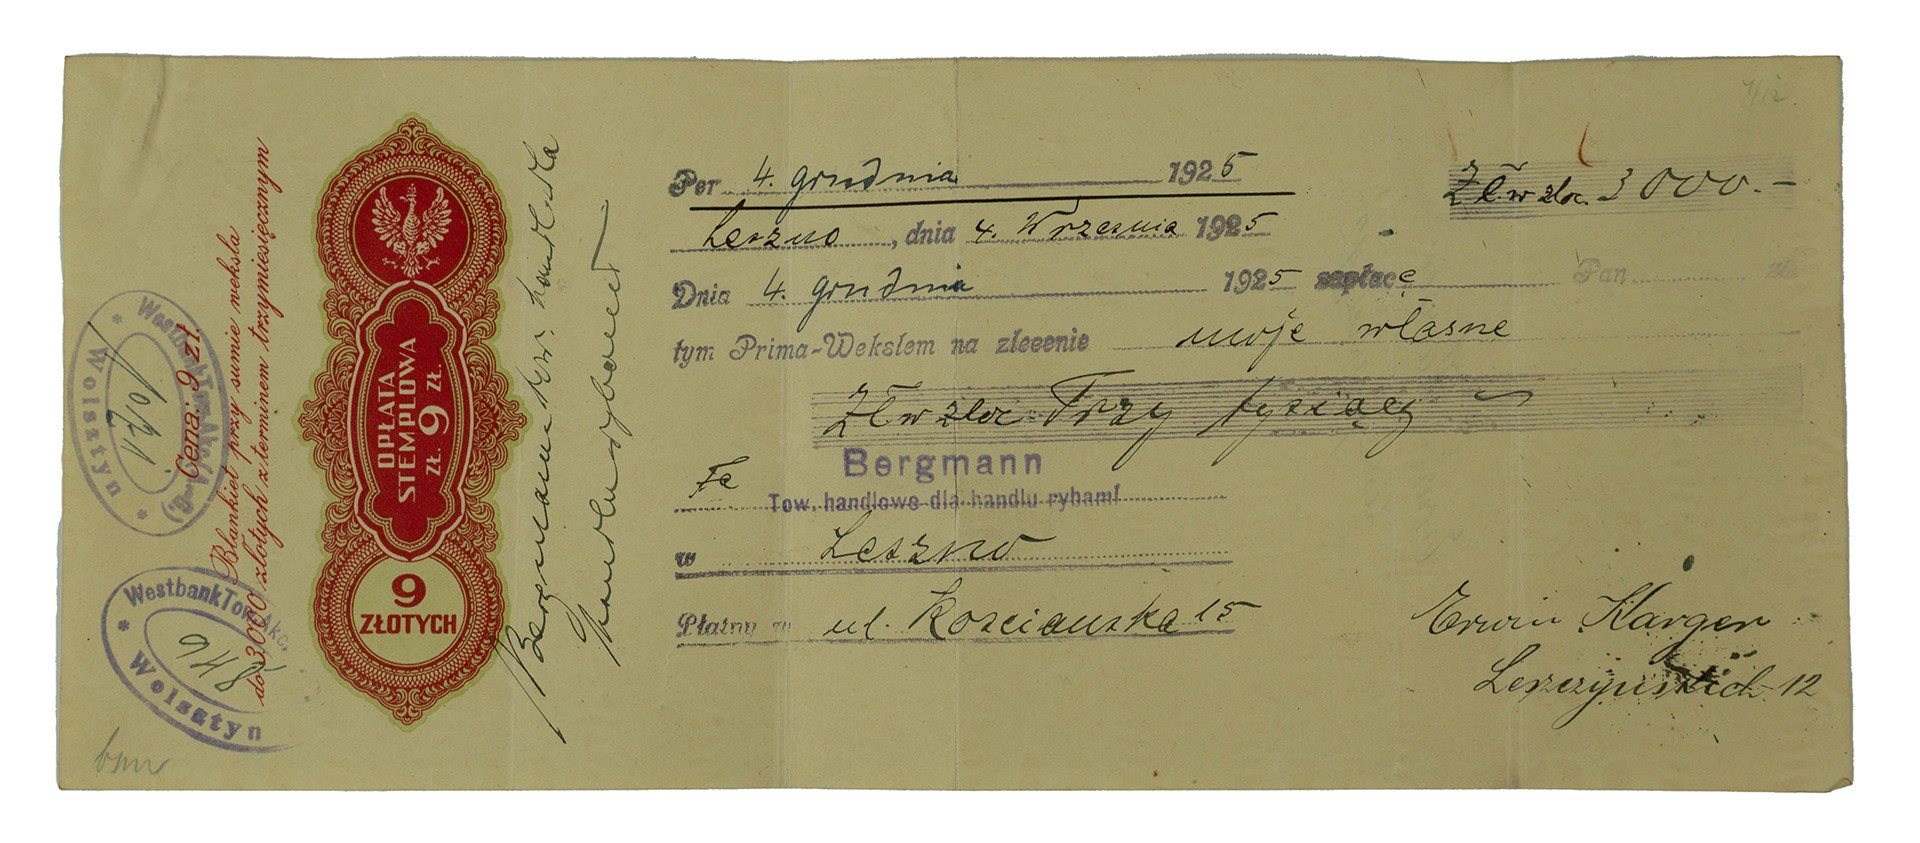 Per 4. grudnia 1925
Zł w złoc. 3000.-
Leszno, dnia 4. Września 1925
Dnia 4. grudnia 1925 zapłacę Pan
tym Prima-Wekslem na zlecenie moje własne
Zł w złoc Trzy tysiący
Fa Bergmann
Tow. handlowe dla handlu rybami
w Leszno
Płatny w ul. Kościańska 15
Erwin Karger
Leszczyńskich 12
Westbank Tow. Akc.
Wolsztyn
Westbank Tow. Akc.
Wolsztyn
846
Cena: 9 zł.
Blankiet przy sumie weksla
do 3000 złotych z terminem trzymiesięcznym
OPŁATA
STEMPLOWA
ZŁ. 9 ZŁ.
9
ZŁOTYCH
Bergmann Tow. handlowe